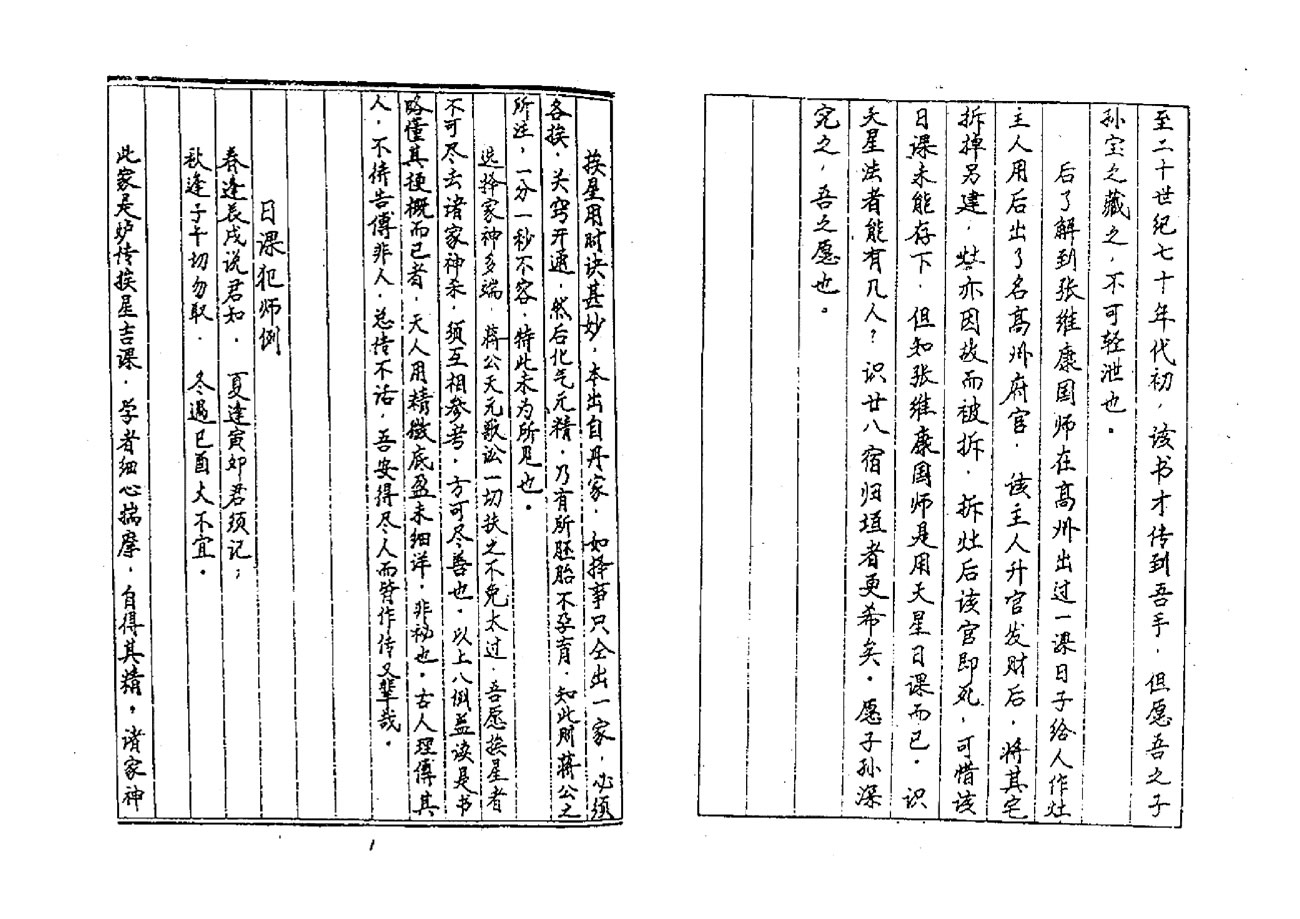 至二十世纪七十年代初，该书才传到吾手，但愿吾之子
孙宝之藏之，不可轻泄也。
后了解到张维康国师在高州出过一课日子给人作灶
主人用后出了名高州府官，该主人升官发财后，将其宅
拆掉另建，灶亦因故而被拆，拆灶后该官即死，可惜该
日课未能存下，但知张维康国师是用天星日课而已，识
天星法者能有几人？识廿八宿归垣者更希矣。愿子孙深
究之，吾之愿也。
挨星用时诀甚妙，本出自丹家，如择事只全出一家，必须
各挨，关窍开通，然后化气元精，乃有所胚胎不孕育，知此则蒋公之
所注，一分一秒不容，特此未为所见也。
选择家神多端，蒋公天元歌讼一切扶之不免太过，吾愿挨星者
不可尽去诸家神杀，须互相参考，方可尽善也，以上八例益读是书
略懂其梗概而已者，天人用精微底盈未细详，非秘也，古人理传其
人，不待告传非人，总传不话，吾安得尽人而皆作传又辈哉。
日课犯师例
春逢辰戌说君知，夏逢寅卯君须记；
秋逢子午切勿取，冬遇巳酉大不宜。
此家是妒传挨星吉课，学者细心揣摩，自得其精，诸家神
1